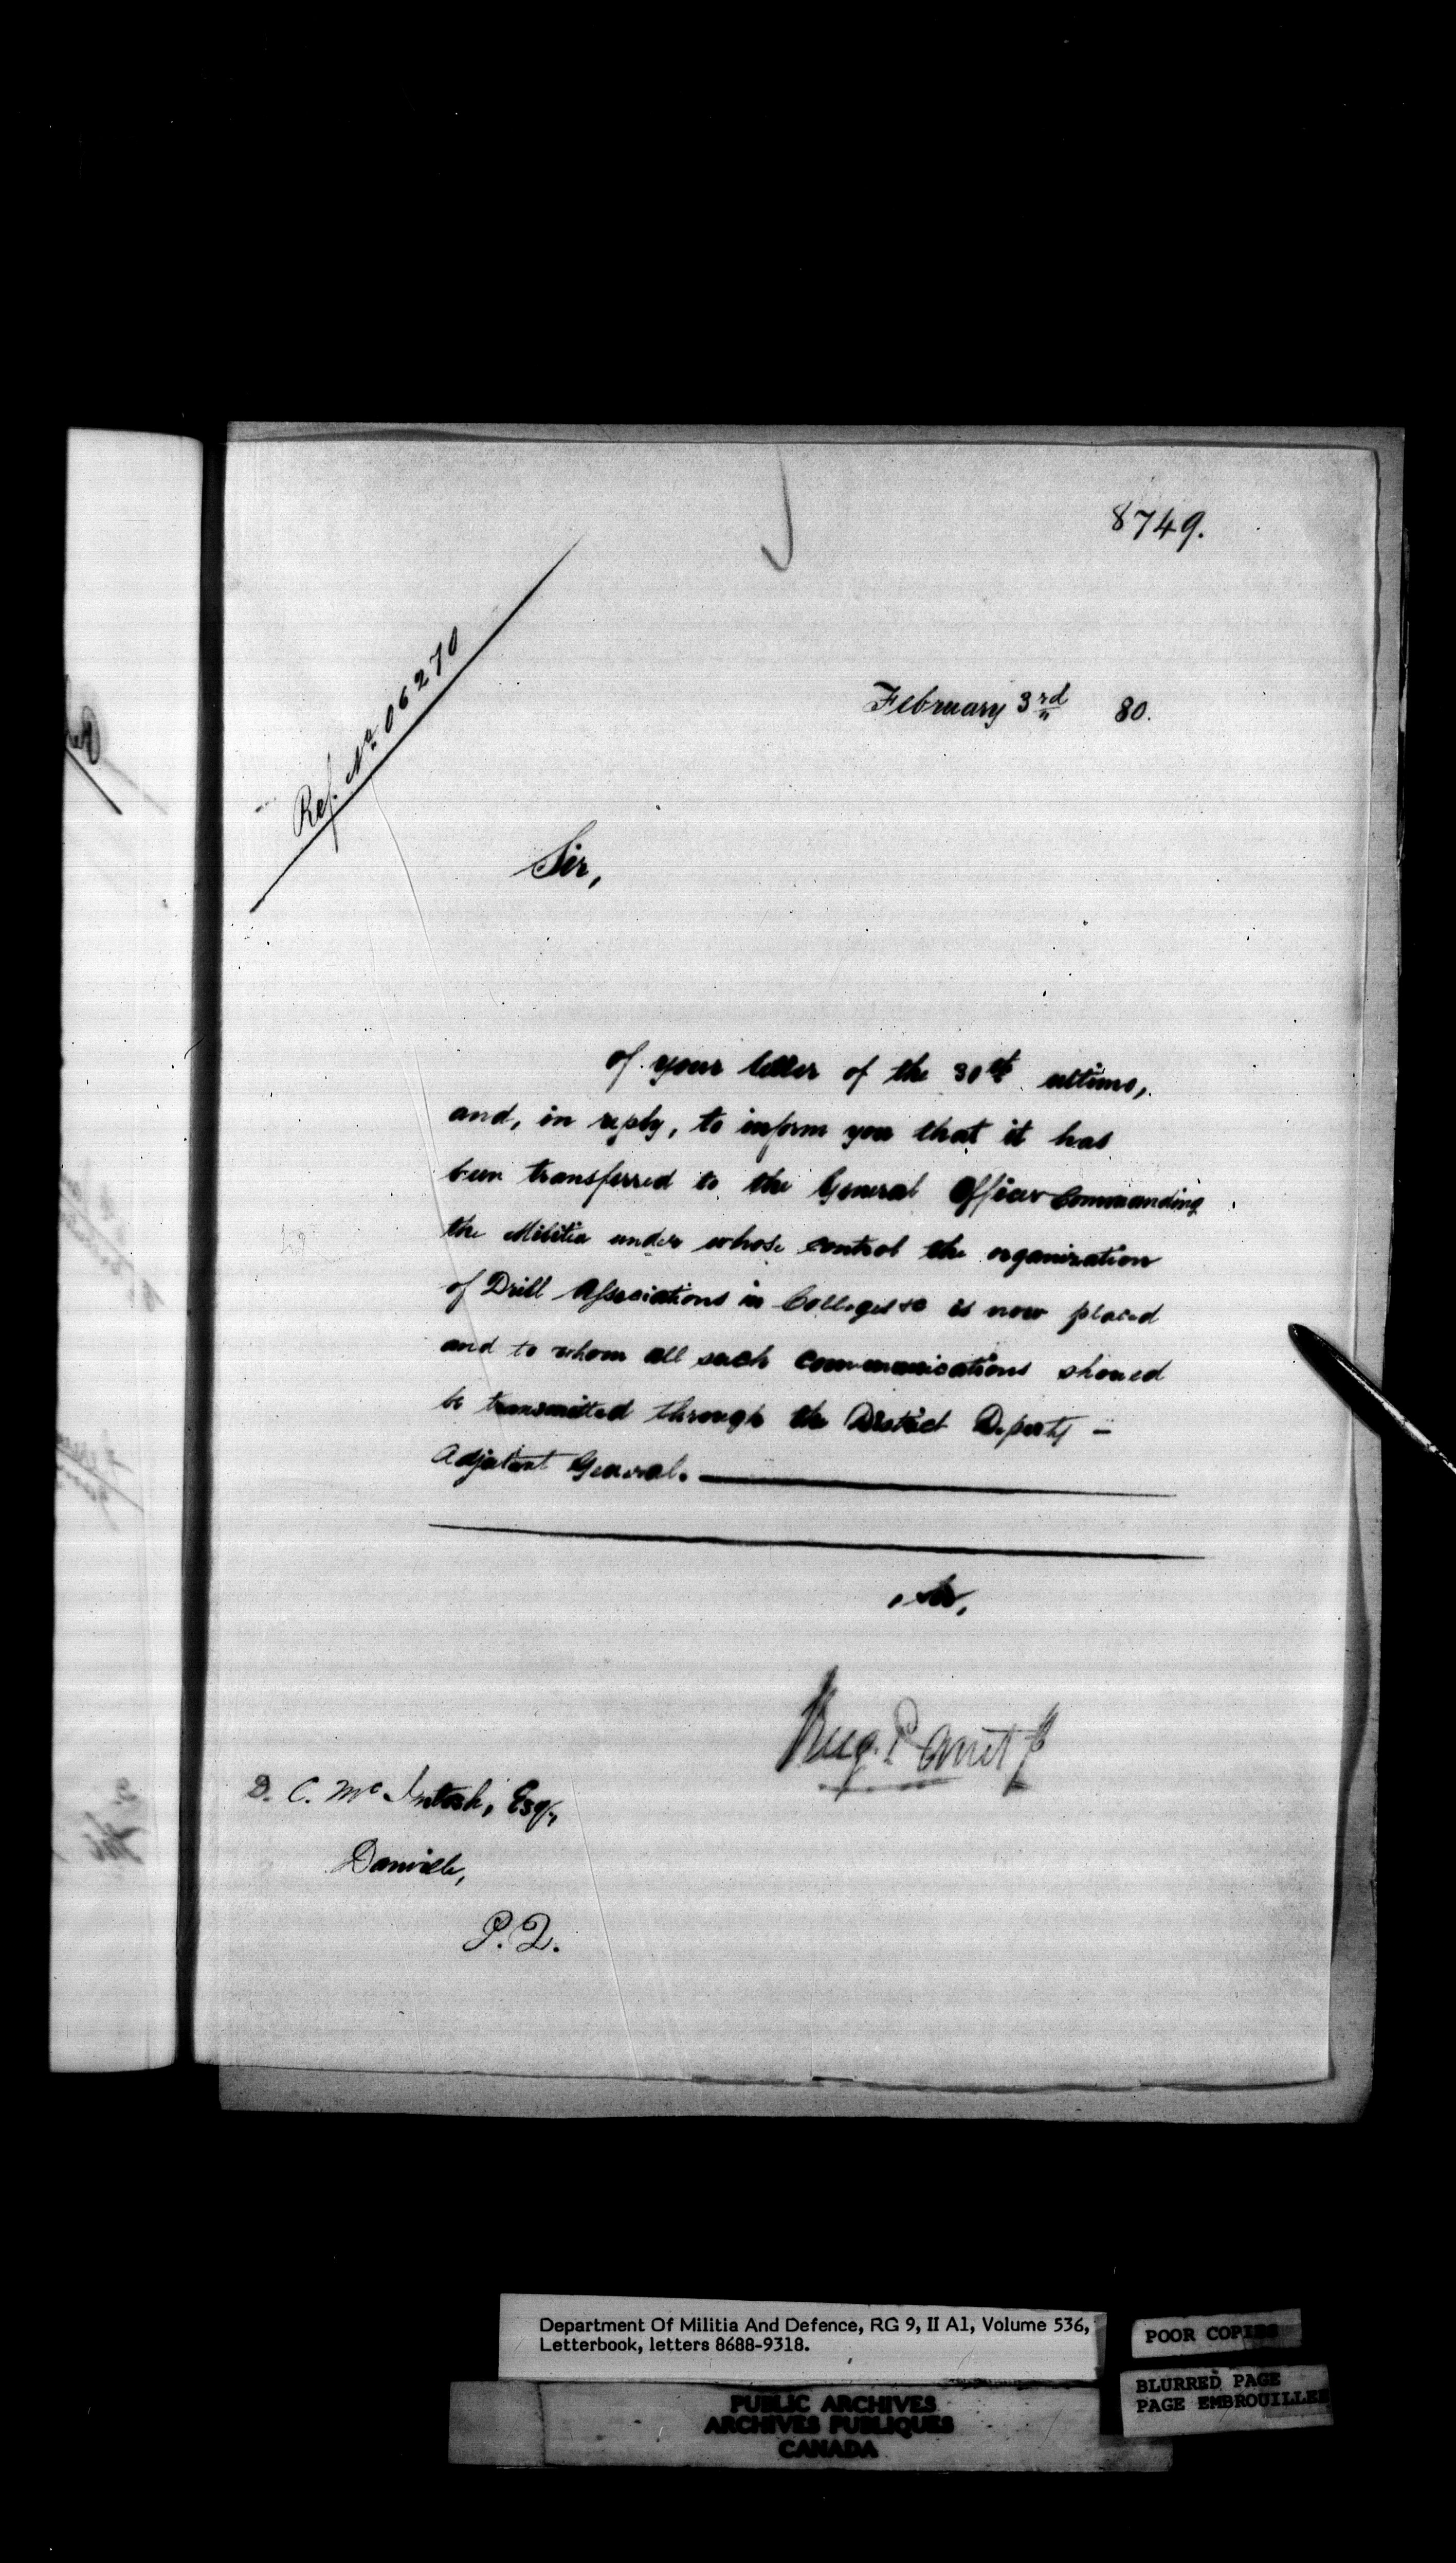 8749.
Ref. No. 06270
February 3rd 80.
Sir,
of your letter of the 30th ultimo,
and, in reply, to inform you that it has
been transferred to the General Officer Commanding
the Militia under whose control the organization
of Drill Associations in Colleges &c is now placed
and to whom all such communications should
be transmitted through the District Deputy -
Adjutant General.
, Sir,
Eug. Panet
D. C. McIntosh, Esq,
Danville,
P.Q.
Department Of Militia And Defence, RG 9, II A1, Volume 536,
Letterbook, letters 8688-9318.
POOR COPIES
BLURRED PAGE
PAGE EMBROUILLEE
PUBLIC ARCHIVES
ARCHIVES PUBLIQUES
CANADA